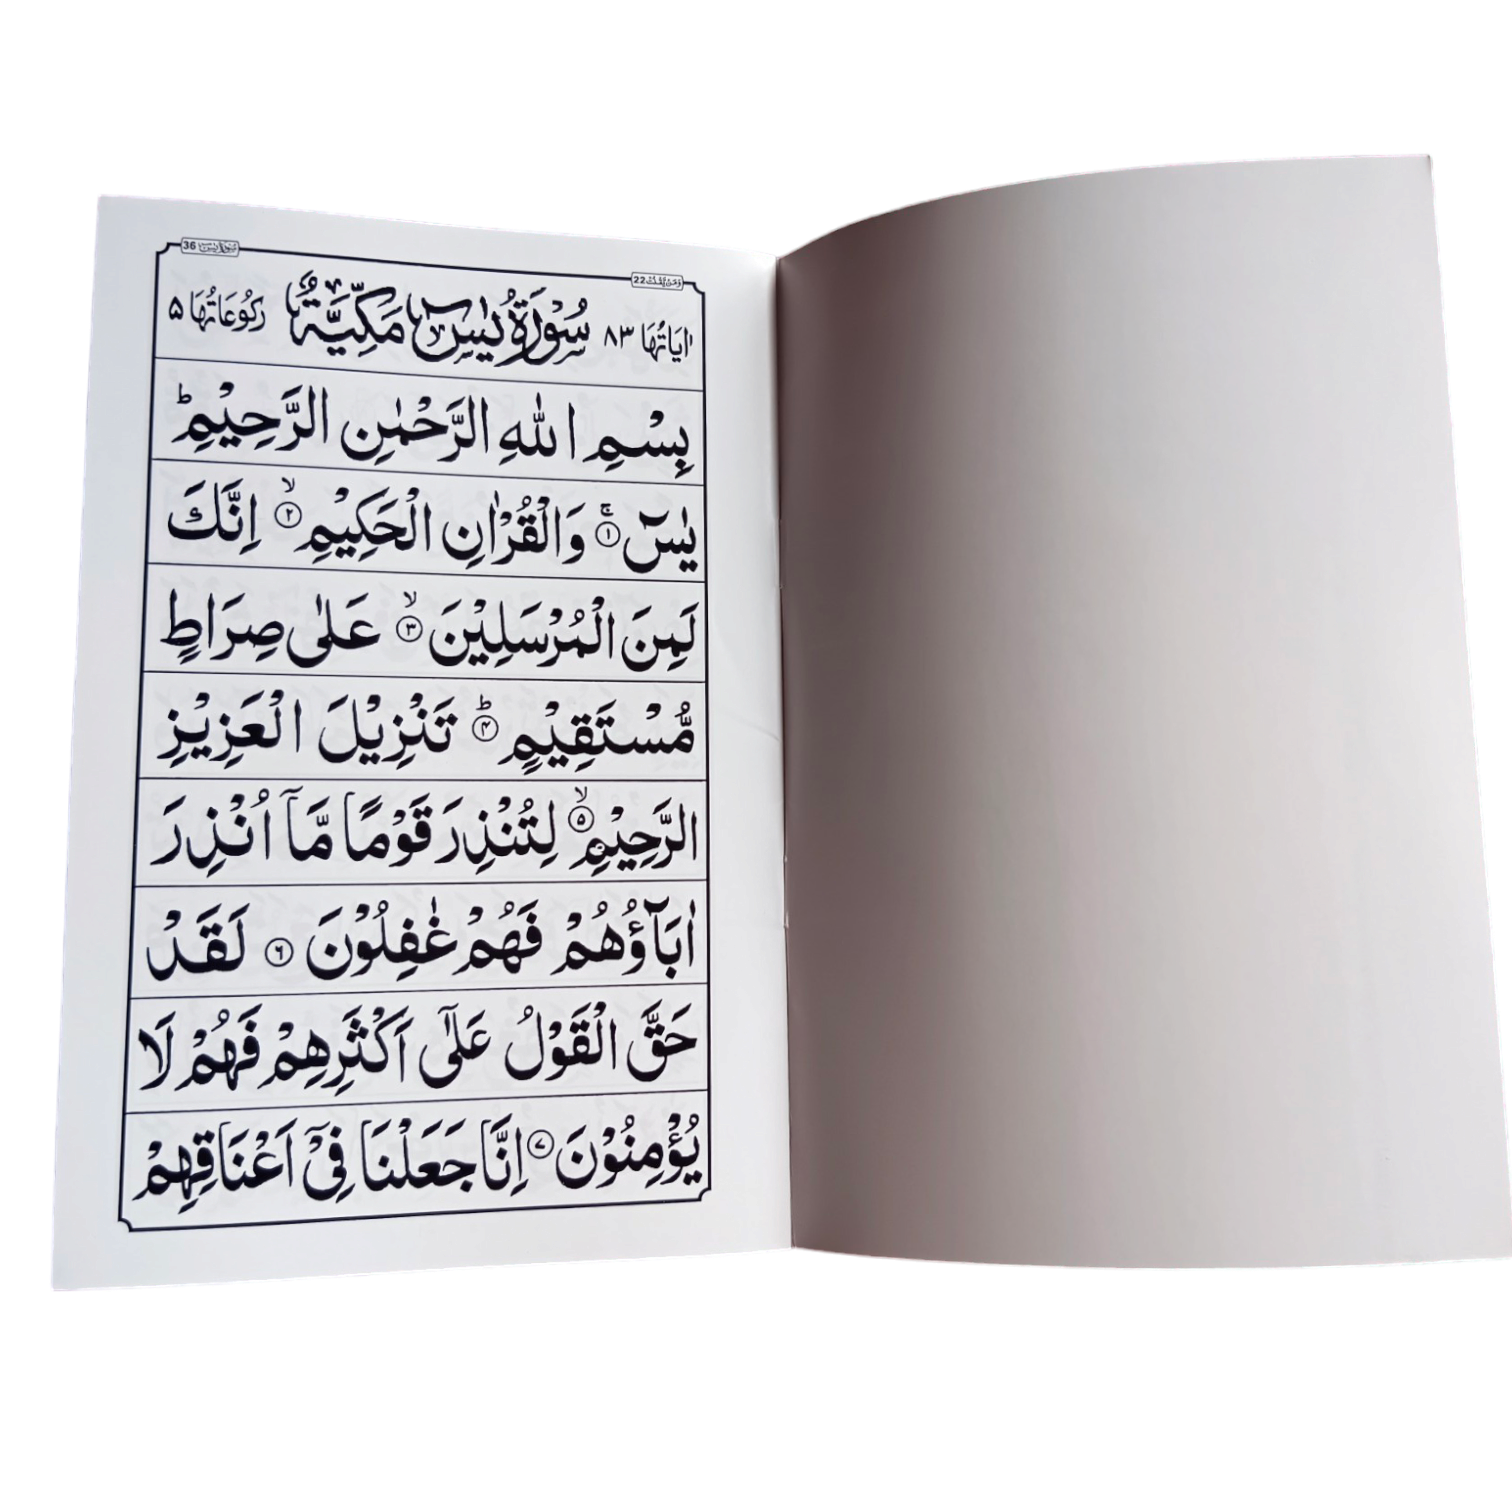 سورة يس 36
ومن يقنت 22
اٰيَاتُهَا ٨٣ سُوْرَةُ يٰسٓ مَكِّيَّةٌ رَكُوْعَاتُهَا ۵
بِسْمِ اللهِ الرَّحْمٰنِ الرَّحِيْمِ ؕ
يٰسٓ ۚ ﴿۱﴾ وَالْقُرْاٰنِ الْحَكِيْمِ ۙ ﴿۲﴾ اِنَّكَ
لَمِنَ الْمُرْسَلِيْنَ ۙ ﴿۳﴾ عَلٰى صِرَاطٍ
مُّسْتَقِيْمٍ ؕ ﴿۴﴾ تَنْزِيْلَ الْعَزِيْزِ
الرَّحِيْمِ ۙ ﴿۵﴾ لِتُنْذِرَ قَوْمًا مَّآ اُنْذِرَ
اٰبَآؤُهُمْ فَهُمْ غٰفِلُوْنَ ﴿۶﴾ لَقَدْ
حَقَّ الْقَوْلُ عَلٰٓى اَكْثَرِهِمْ فَهُمْ لَا
يُؤْمِنُوْنَ ﴿۷﴾ اِنَّا جَعَلْنَا فِيْٓ اَعْنَاقِهِمْ